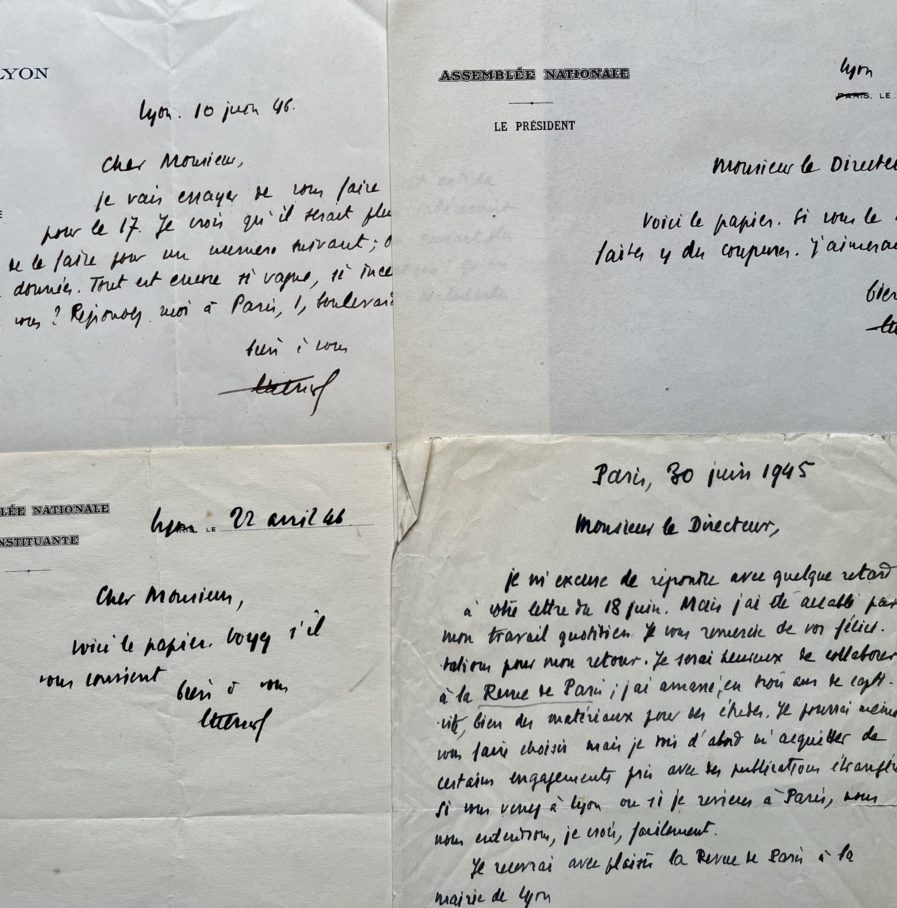 LYON
Lyon. 10 juin 46.
Cher Monsieur,
Je vais essayer de vous faire
pour le 17. Je crois qu'il serait plu
de le faire pour un numéro suivant ;
données. Tout est encore si vague, si ince
vous ? Répondez moi à Paris, 1, boulevard
bien à vous
ASSEMBLÉE NATIONALE
LE PRÉSIDENT
Lyon
PARIS, LE
Monsieur le Directeu
Voici le papier. Si vous le
faites y des coupures. J'aimerai
bien
LÉE NATIONALE
NSTITUANTE
Lyon LE 22 avril 46
Cher Monsieur,
voici le papier. Voyez s'il
vous convient
bien à vous
Paris, 30 juin 1945
Monsieur le Directeur,
Je m'excuse de répondre avec quelque retard
à votre lettre du 18 juin. Mais j'ai été accablé par
mon travail quotidien. Je vous remercie de vos félici-
tations pour mon retour. Je serai heureux de collaborer
à la Revue de Paris ; j'ai amassé, en trois ans de capti-
vité, bien des matériaux pour des études. Je pourrai même
vous faire choisir mais je dois d'abord m'acquitter de
certains engagements pris avec des publications étrangère
Si vous venez à Lyon ou si je reviens à Paris, nous
nous entendrons, je crois, facilement.
Je recevrai avec plaisir la Revue de Paris à la
mairie de Lyon